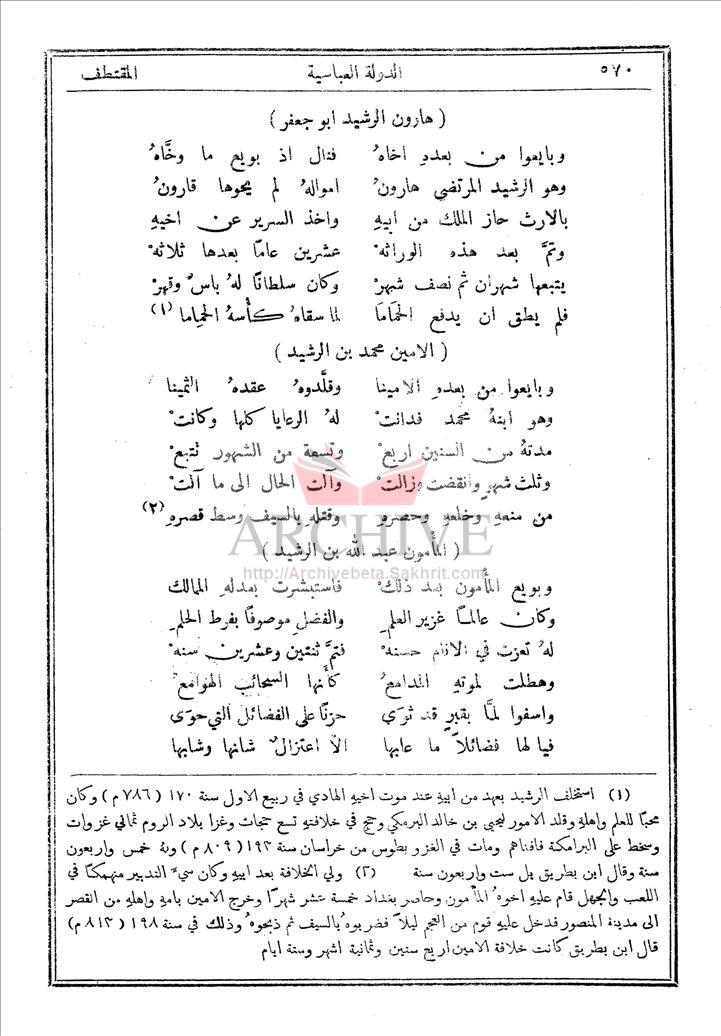 ٥٧٠ الدولة العباسية المقتطف
( هارون الرشيد ابو جعفر )
وبايعوا من بعدهِ اخاهُ فنال اذ بويع ما وخَّاهُ
وهو الرشيد المرتضي هارونُ اموالهُ لم يحوها قارونُ
بالارث حاز الملك من ابيهِ واخذ السرير عن اخيهِ
وتمَّ بعد هذه الوراثهْ عشرين عامًا بعدها ثلاثهْ
يتبعها شهران ثم نصف شهرْ وكان سلطانًا لهُ باسٌ وقهرْ
فلم يطق ان يدفع الحَمَامَا لما سقاهُ كأْسهُ الحِماما (١)
( الامين محمد بن الرشيد )
وبايعوا من بعدهِ الامينا وقلَّدوهُ عقدهُ الثمينا
وهو ابنهُ محمد فدانتْ لهُ الرعايا كلها وكانتْ
مدتهُ من السنين اربعْ وتسعة من الشهور تتبعْ
وثلث شهرٍ وانقضت وزالتْ وآلت الحال الى ما آلتْ
من منعهِ وخلعهِ وحصرهِ وقتلهِ بالسيف وسط قصرهِ (٢)
ARCHIVE
( المأمون عبد الله بن الرشيد )
http://Archivebeta.Sakhrit.com
وبويع المأمون بعد ذلكْ فاستبشرت بعدلهِ الممالك
وكان عالمًا غزير العلمِ والفضلِ موصوفًا بفرط الحلمِ
لهُ تعزت في الانام حسنهْ فتمَّ ثنتين وعشرين سنهْ
وهطلت لموتهِ المدامعُ كأنها السحائب الهوامعُ
واسفوا لمَّا بقبرٍ قد ثوى حزنًا على الفضائل التي حوى
فيا لها فضائلاً ما عابها الاَّ اعتزالٌ شانها وشابها
(١) استخلف الرشيد بعهد من ابيهِ عند موت اخيهِ الهادي في ربيع الاول سنة ١٧٠ (٧٨٦ م) وكان
محبًّا للعلم واهلهِ وقلد الامور ليحيى بن خالد البرمكي وحج في خلافتهِ تسع حجات وغزا بلاد الروم ثماني غزوات
وسخط على البرامكة فافناهم ومات في الغزو بطوس من خراسان سنة ١٩٣ (٨٠٩ م) ولهُ خمس واربعون
سنة وقال ابن بطريق بل ست واربعون سنة (٢) ولي الخلافة بعد ابيهِ وكان سيءَ التدبير منهمكًا في
اللعب والجهل قام عليهِ اخوهُ المأمون وحاصر بغداد خمسة عشر شهرًا وخرج الامين بامهِ واهلهِ من القصر
الى مدينة المنصور فدخل عليهِ قوم من العجم ليلاً فضربوهُ بالسيف ثم ذبحوهُ وذلك في سنة ١٩٨ (٨١٣ م)
قال ابن بطريق كانت خلافة الامين اربع سنين وثمانية اشهر وستة ايام